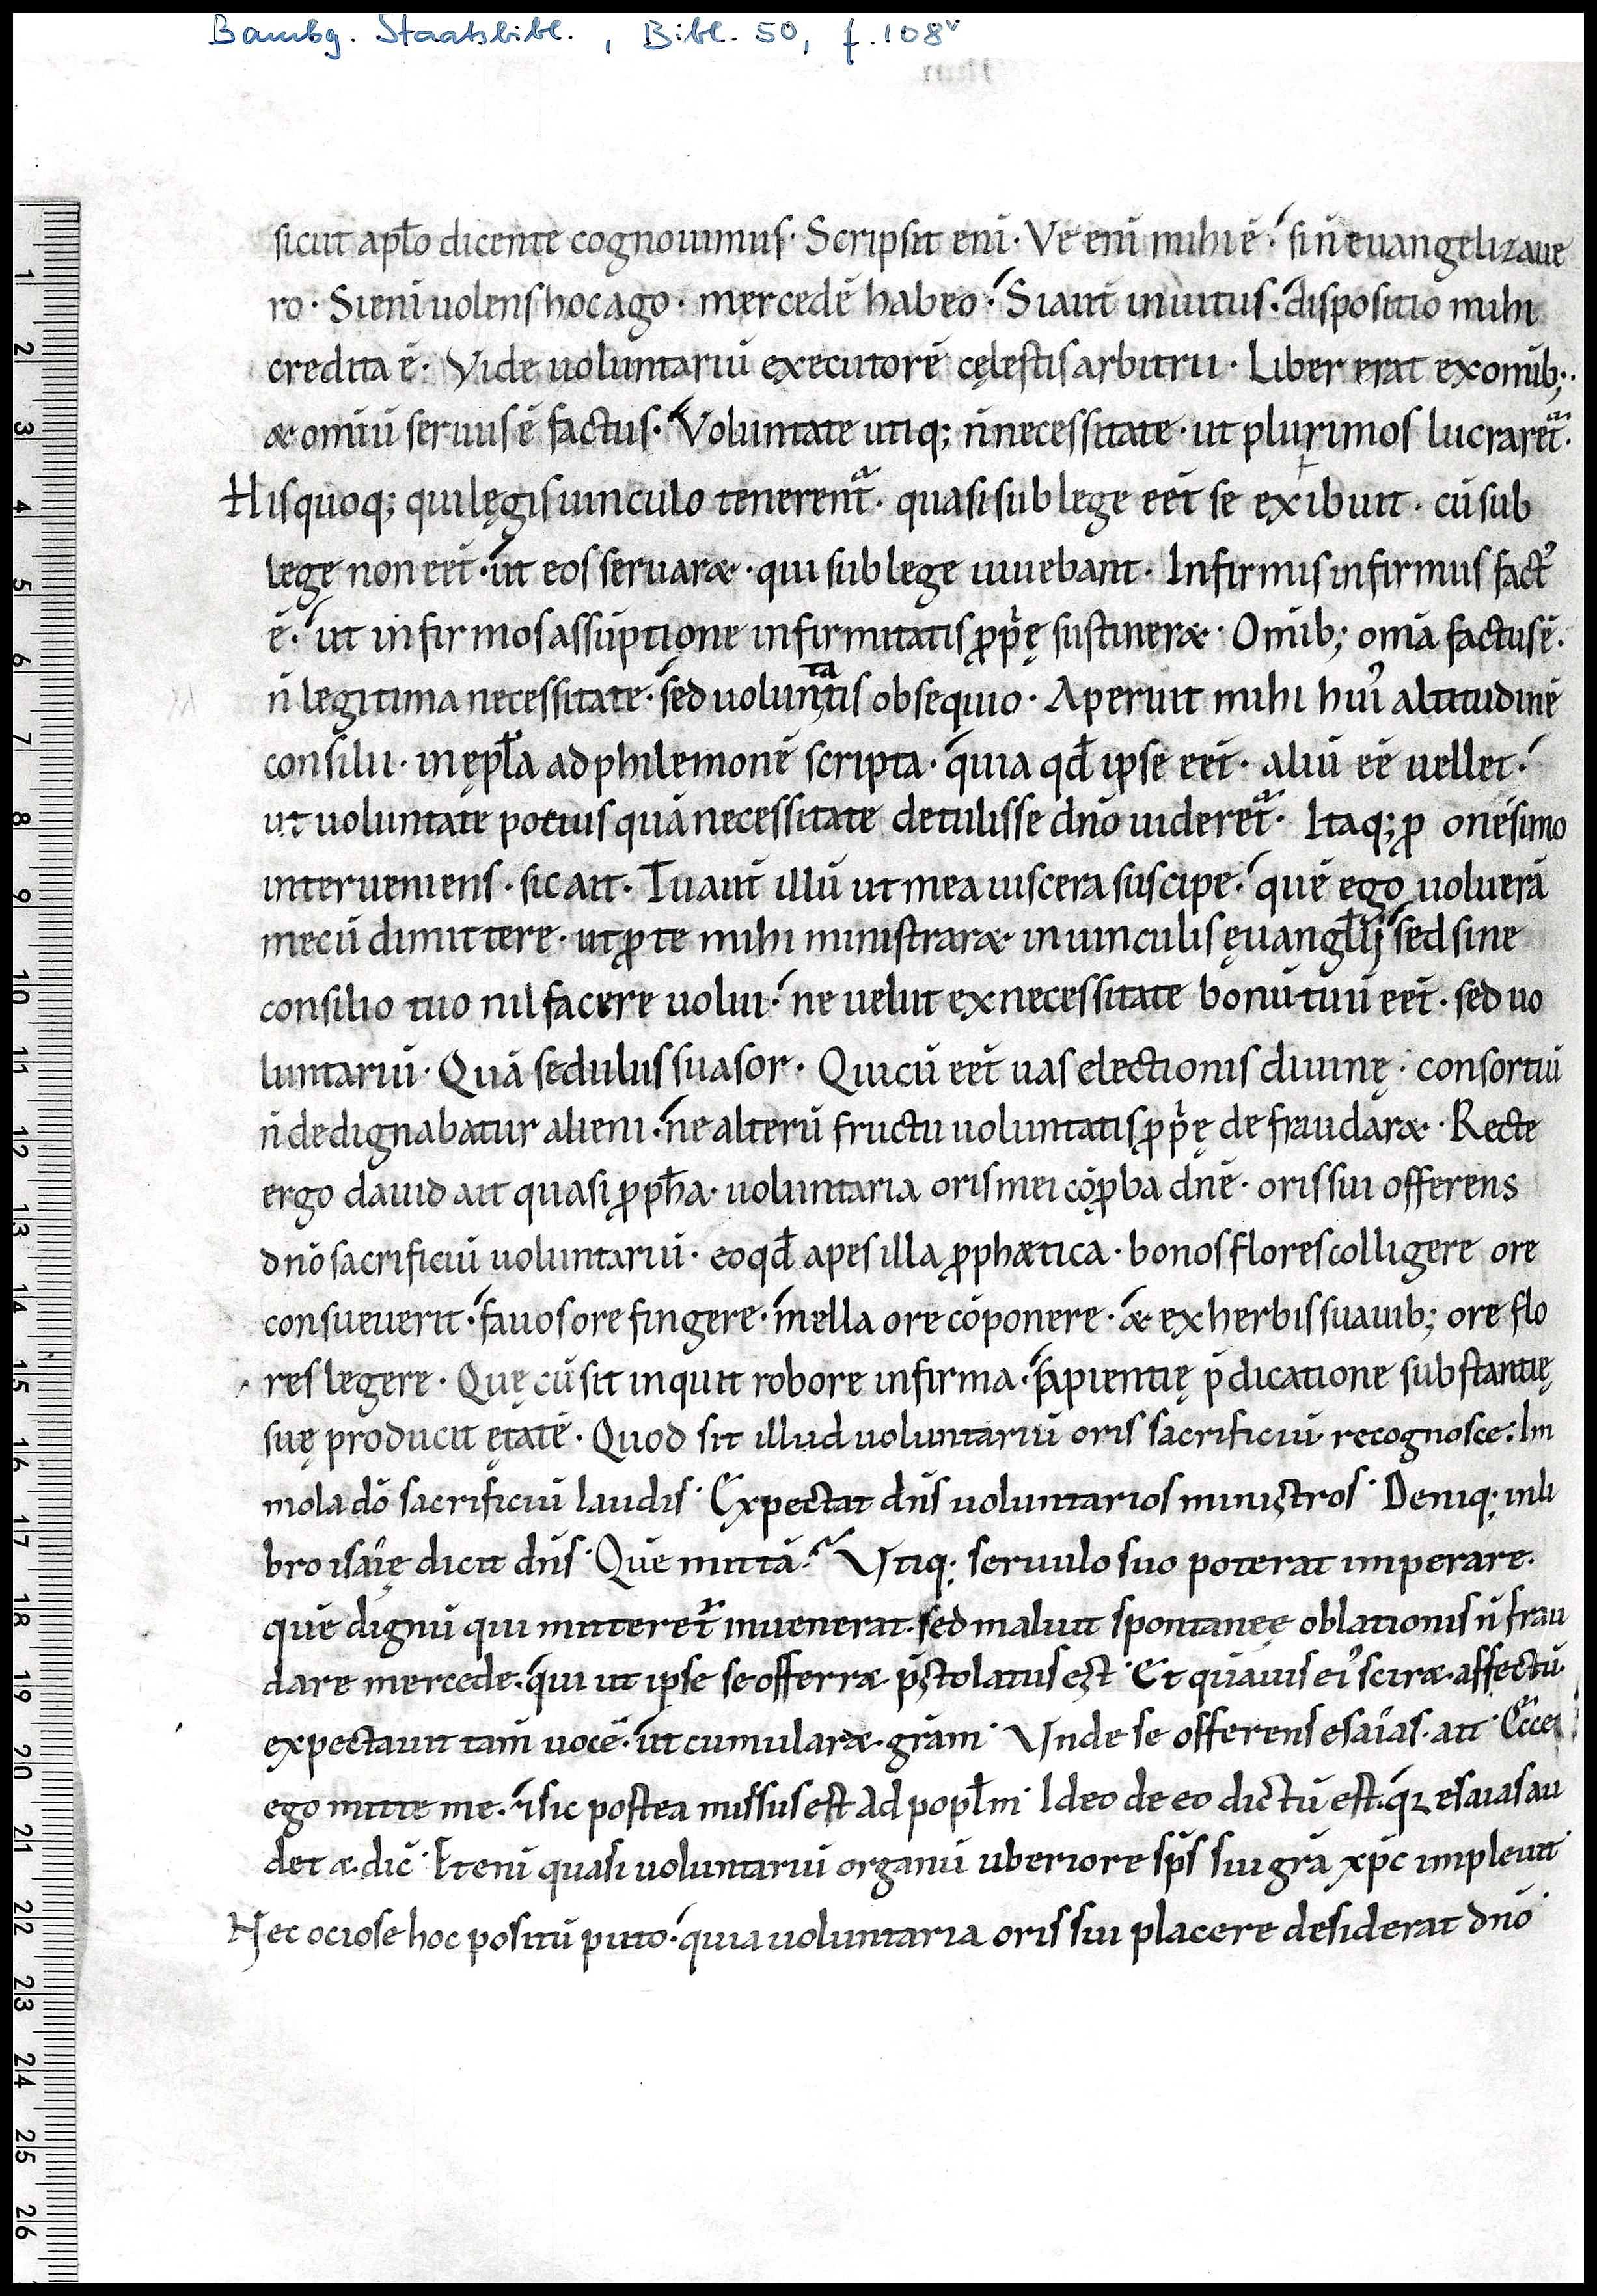 Bambg. Staatsbibl., Bibl. 50, f. 108v
sicut apł̄o dicente cognouimus· Scripsit eni̅· Ve eni̅ mihi ē· si n̄ euangelizaue
ro· Si eni̅ uolens hoc ago· mercedē habeo· Si aut̅ inuitus· dispositio mihi
credita ē· Vide uoluntariū executorē cęlestis arbitrii· Liber erat ex om̅ib;·
& om̅iū seruus ē factus· Voluntate utiq; n̄ necessitate· ut plurimos lucraret̅·
His quoq; qui lęgis uinculo tenerent̅· quasi sub lege eēt se exibuit· cū sub
lege non eēt· ut eos seruar&· qui sub lege uiuebant· Infirmis infirmus fact᾽
ē· ut infirmos assūptione infirmitatis ꝓp̄ę sustiner&· Om̅ib; om̅a factus ē·
n̄ legitima necessitate· sed uoluntatis obsequio· Aperuit mihi hui᾽ altitudinē
consilii· in ępł̄a ad philemonē scripta· quia qđ ipse eēt· aliū eē uellet·
ut uoluntate potius quā necessitate detulisse dn̄o uideret̅· Itaq; ꝓ onesimo
interueniens· sic ait· Tu aut̅ illū ut mea uiscera suscipe· quē ego uoluerā
mecū dimittere· ut ꝓ te mihi ministrar& in uinculis ęuangłij sed sine
consilio tuo nil facere uolui· ne uelut ex necessitate bonū tuū eēt· sed uo
luntariū· Quā sedulus suasor· Qui cū eēt uas electionis diuinę· consortiū
n̄ dedignabatur alieni· ne alterū fructu uoluntatis ꝓp̄ę defraudar&· Recte
ergo dauid ait quasi ꝓph̄a· uoluntaria oris mei cōꝓba dn̄e· oris sui offerens
dn̄o sacrificiū uoluntariū· eo qđ apes illa ꝓph&ica· bonos flores colligere ore
consueuerit· fauos ore fingere· mella ore cōponere· & ex herbis suauib; ore flo
res legere· Quę cū sit inquit robore infirma· sapientię p̄dicatione substantię
suę producit ętatē· Quod sit illud uoluntariū oris sacrificiū recognosce: Im
mola dō sacrificiū laudis· Expectat dn̄s uoluntarios ministros· Deniq; in li
bro isaię dicit dn̄s· Quē mittā· Vtiq; seruulo suo poterat imperare·
quē dignū qui mitteret̅ inuenerat· sed maluit spontaneę oblationis n̄ frau
dare mercede· qui ut ipse se offerr& p̄stolatus est· Et quāuis ei᾽ scir& affectū·
expectauit tam̅ uocē· ut cumular& gr̄am· Vnde se offerens esaias· ait· Ecce
ego mitte me· isic postea missus est ad popł̄m· Ideo de eo dictū est· qꝛ esaias au
det & dic̄· Eteni̅ quasi uoluntariū organū uberiore sp̄s sui gr̄a xp̄c impleuit·
Nec ociose hoc positū puto· quia uoluntaria oris sui placere desiderat dn̄o·
1
2
3
4
5
6
7
8
9
10
11
12
13
14
15
16
17
18
19
20
21
22
23
24
25
26